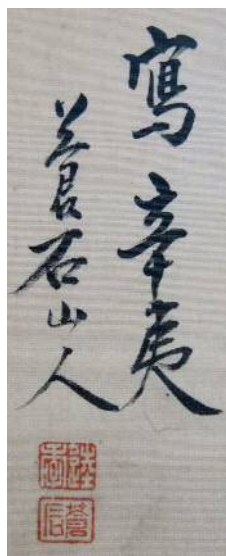 寫辛夷
蒼石山人